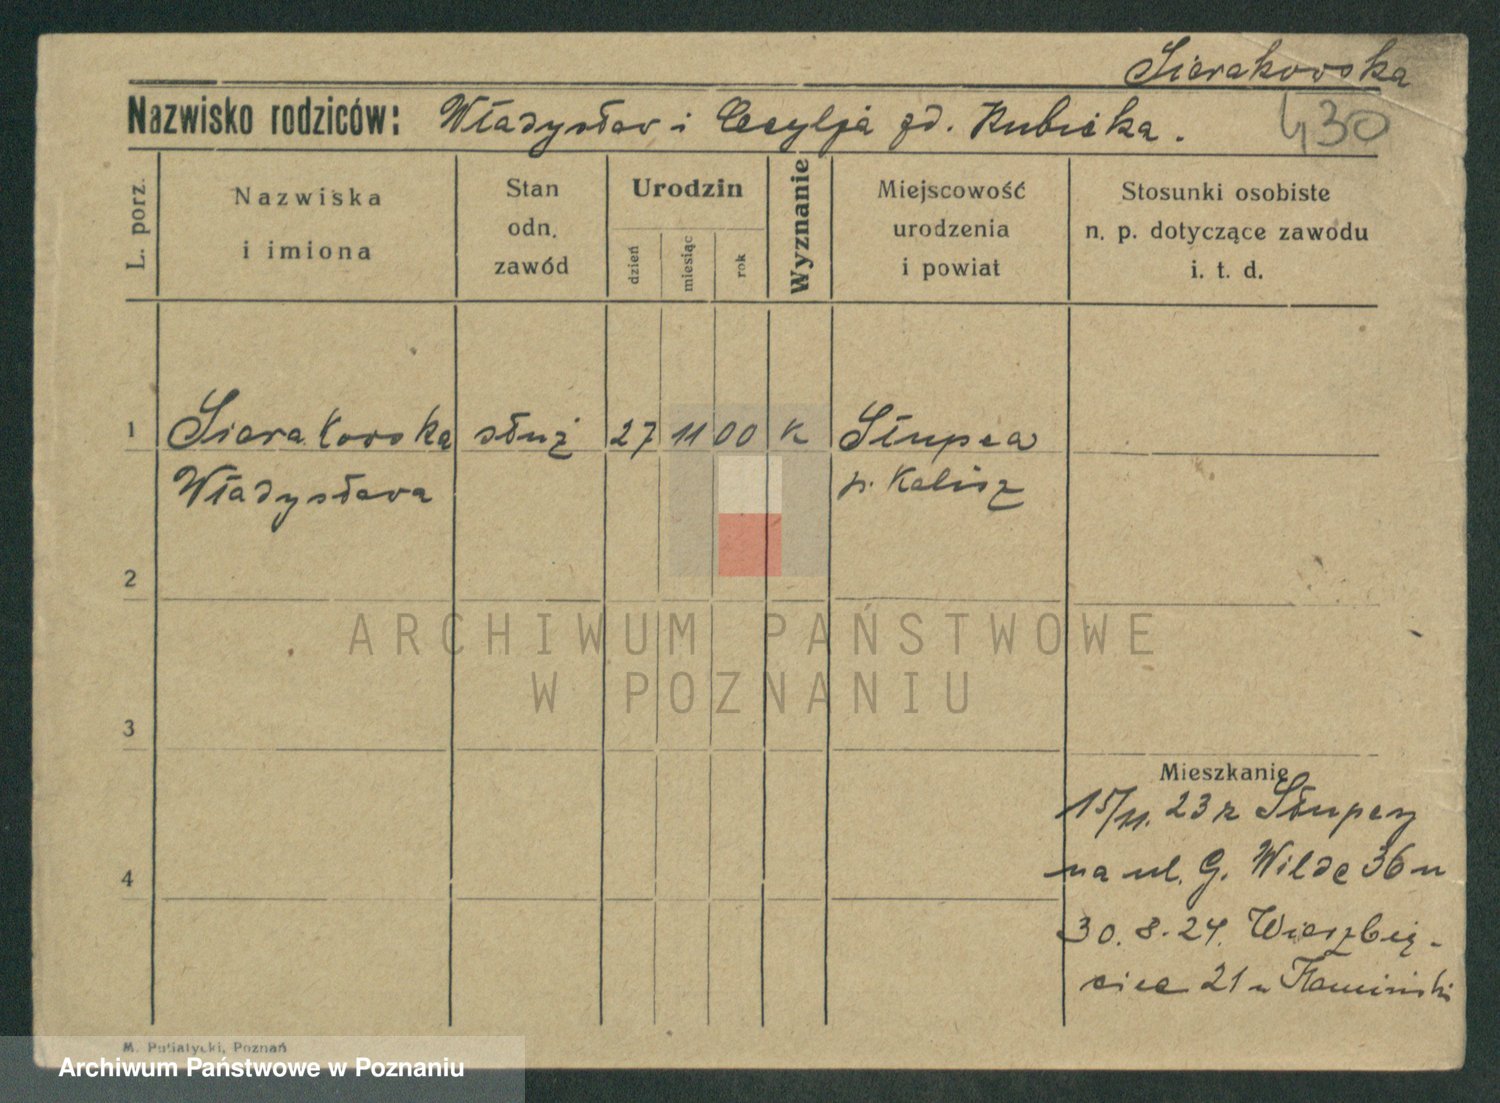 Sierakowska
Nazwisko rodziców: Władysław i Cecylja zd. Kubicka.
430
L. porz.
Nazwiska
i imiona
Stan
odn.
zawód
Urodzin
dzień
miesiąc
rok
Wyznanie
Miejscowość
urodzenia
i powiat
Stosunki osobiste
n. p. dotyczące zawodu
i. t. d.
1 Sierakowska służ 27 11 00 K Słupca
Władysława p. Kalisz
2
ARCHIWUM PAŃSTWOWE
W POZNANIU
3
Mieszkanie
15/11. 23 z Słupcy
4 na ul. G. Wilde 36 u
30. 8. 24. Wierzbię-
cice 21 u Kamiński
M. Putiatycki, Poznań
Archiwum Państwowe w Poznaniu